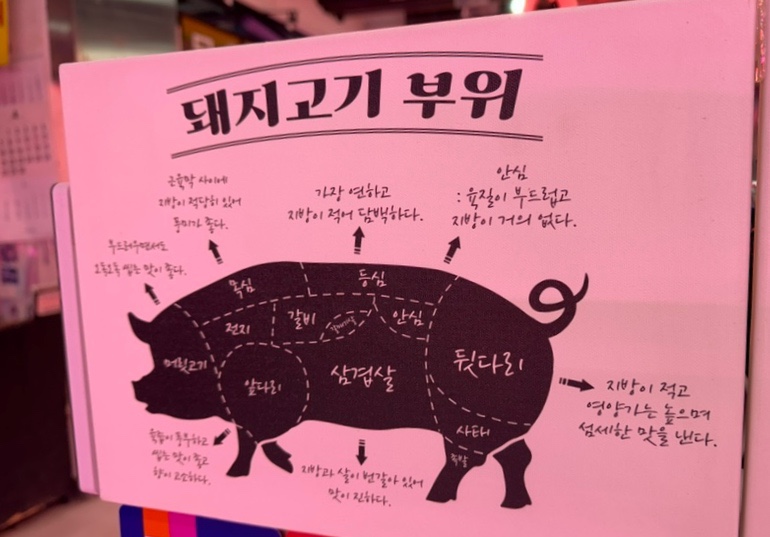 돼지고기 부위
근육막 사이에
지방이 적당히 있어
풍미가 좋다.
가장 연하고
지방이 적어 담백하다.
안심
: 육질이 부드럽고
지방이 거의 없다.
부드러우면서도
오독오독 씹는 맛이 좋다.
목심
등심
전지
갈비
갈매기살
안심
머릿고기
앞다리
삼겹살
뒷다리
사태
족발
지방이 적고
영양가는 높으며
섬세한 맛을 낸다.
육즙이 풍부하고
씹는 맛이 좋고
향이 고소하다.
지방과 살이 번갈아 있어
맛이 진하다.